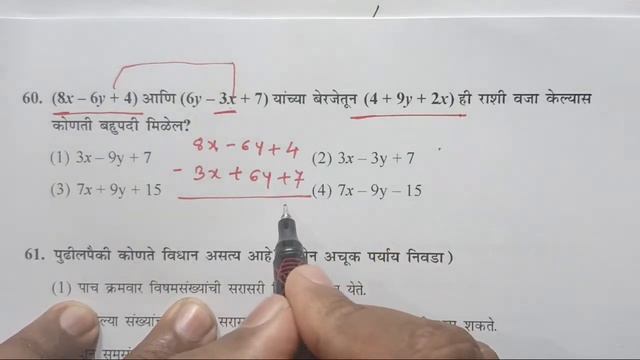 60. (8x – 6y + 4) आणि (6y – 3x + 7) यांच्या बेरजेतून (4 + 9y + 2x) ही राशी वजा केल्यास
कोणती बहुपदी मिळेल?
8x – 6y + 4
(1) 3x – 9y + 7 (2) 3x – 3y + 7
– 3x + 6y + 7
(3) 7x + 9y + 15 (4) 7x – 9y – 15
61. पुढीलपैकी कोणते विधान असत्य आहे अचूक पर्याय निवडा)
(1) पाच क्रमवार विषमसंख्यांची सरासरी येते.
संख्यां